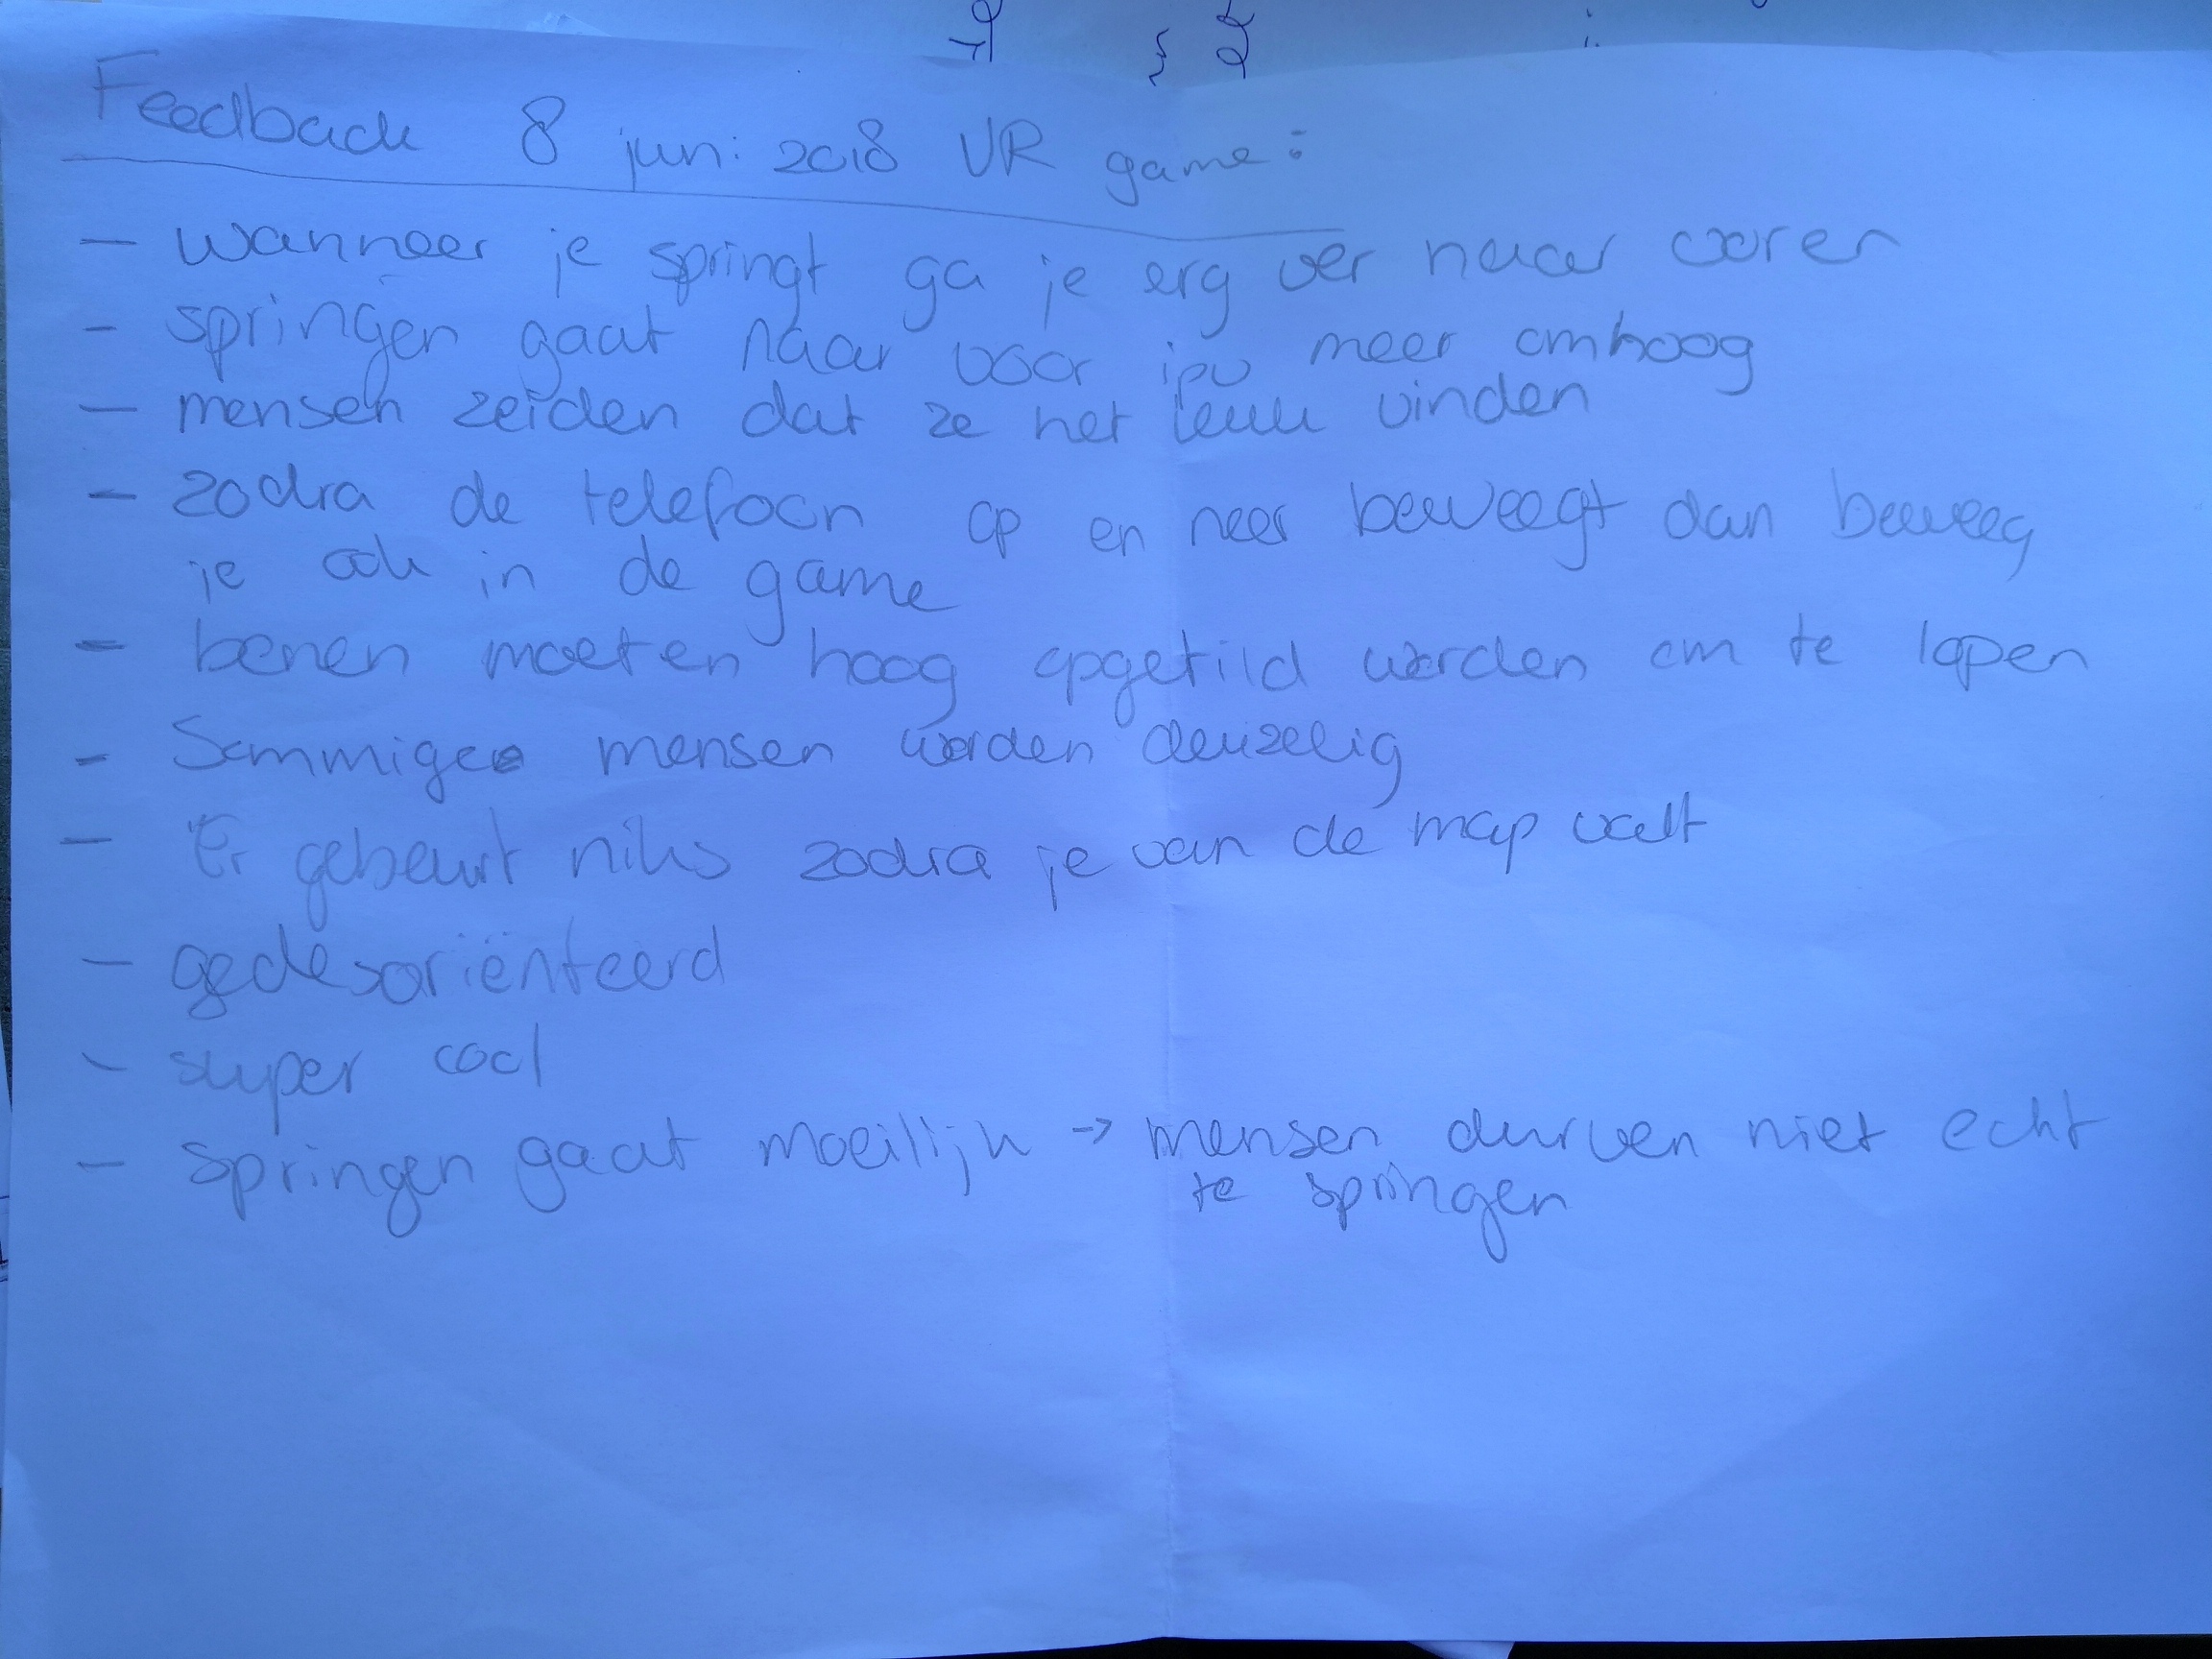 Feedback 8 juni 2018 VR game:
- wanneer je springt ga je erg ver naar voren
- springen gaat naar voor ipv meer omhoog
- mensen zeiden dat ze het leuk vinden
- zodra de telefoon op en neer beweegt dan beweeg
je ook in de game
- benen moeten hoog opgetild worden om te lopen
- Sommige mensen worden deuizelig
- Er gebeurt niks zodra je van de map valt
- gedesoriënteerd
- super cool
- springen gaat moeilijk -> mensen durven niet echt
te springen